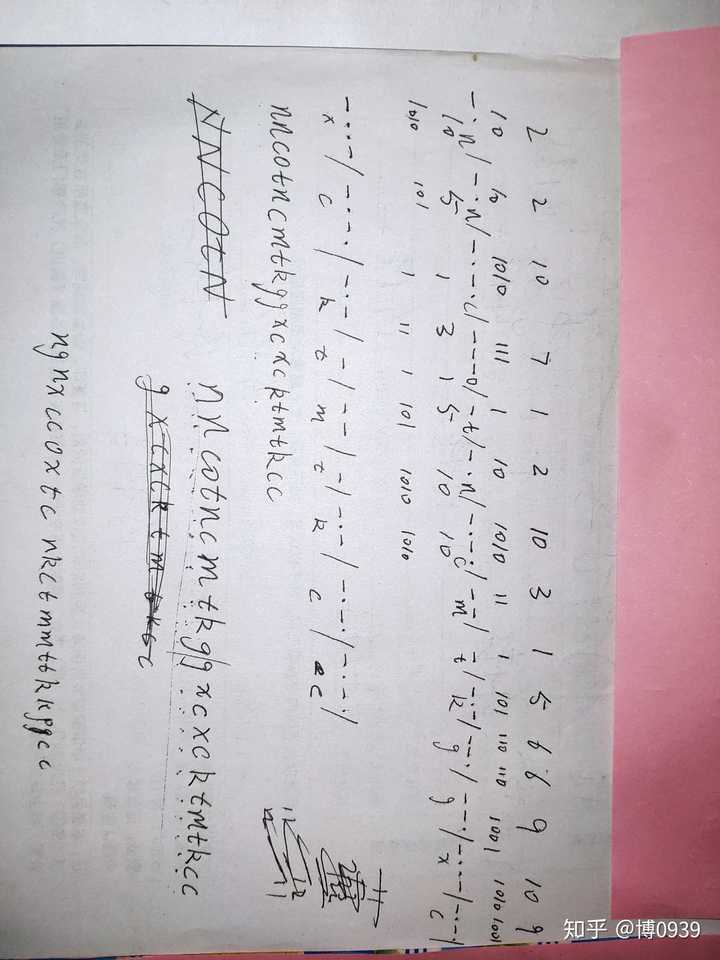 2 2 10 7 1 2 10 3 1 5 6 6 9 10 9
10 10 1010 111 1 10 1010 11 1 101 110 110 1001 1010 1001
-·n/-·n/-·-·c/---o/-t/-·n/-·-·c/--m/-t/-·-k/--·g/--·g/-··-x/-·-·c/
10 5 1 3 1 5 10 10
1010 101 1 11 1 101 1010 1010
-··-/-·-·/-·-/-/--/-/-·-/-·-·/-·-·/
x c k t m t k c c
nncotncmtkggxcxcktmtkcc
NNCOtN
nncotncmtkggxcxcktmtkcc
gxcxcktmtkcc
ngnxccoxtcnkctmmttkkggcc
知乎 @博0939